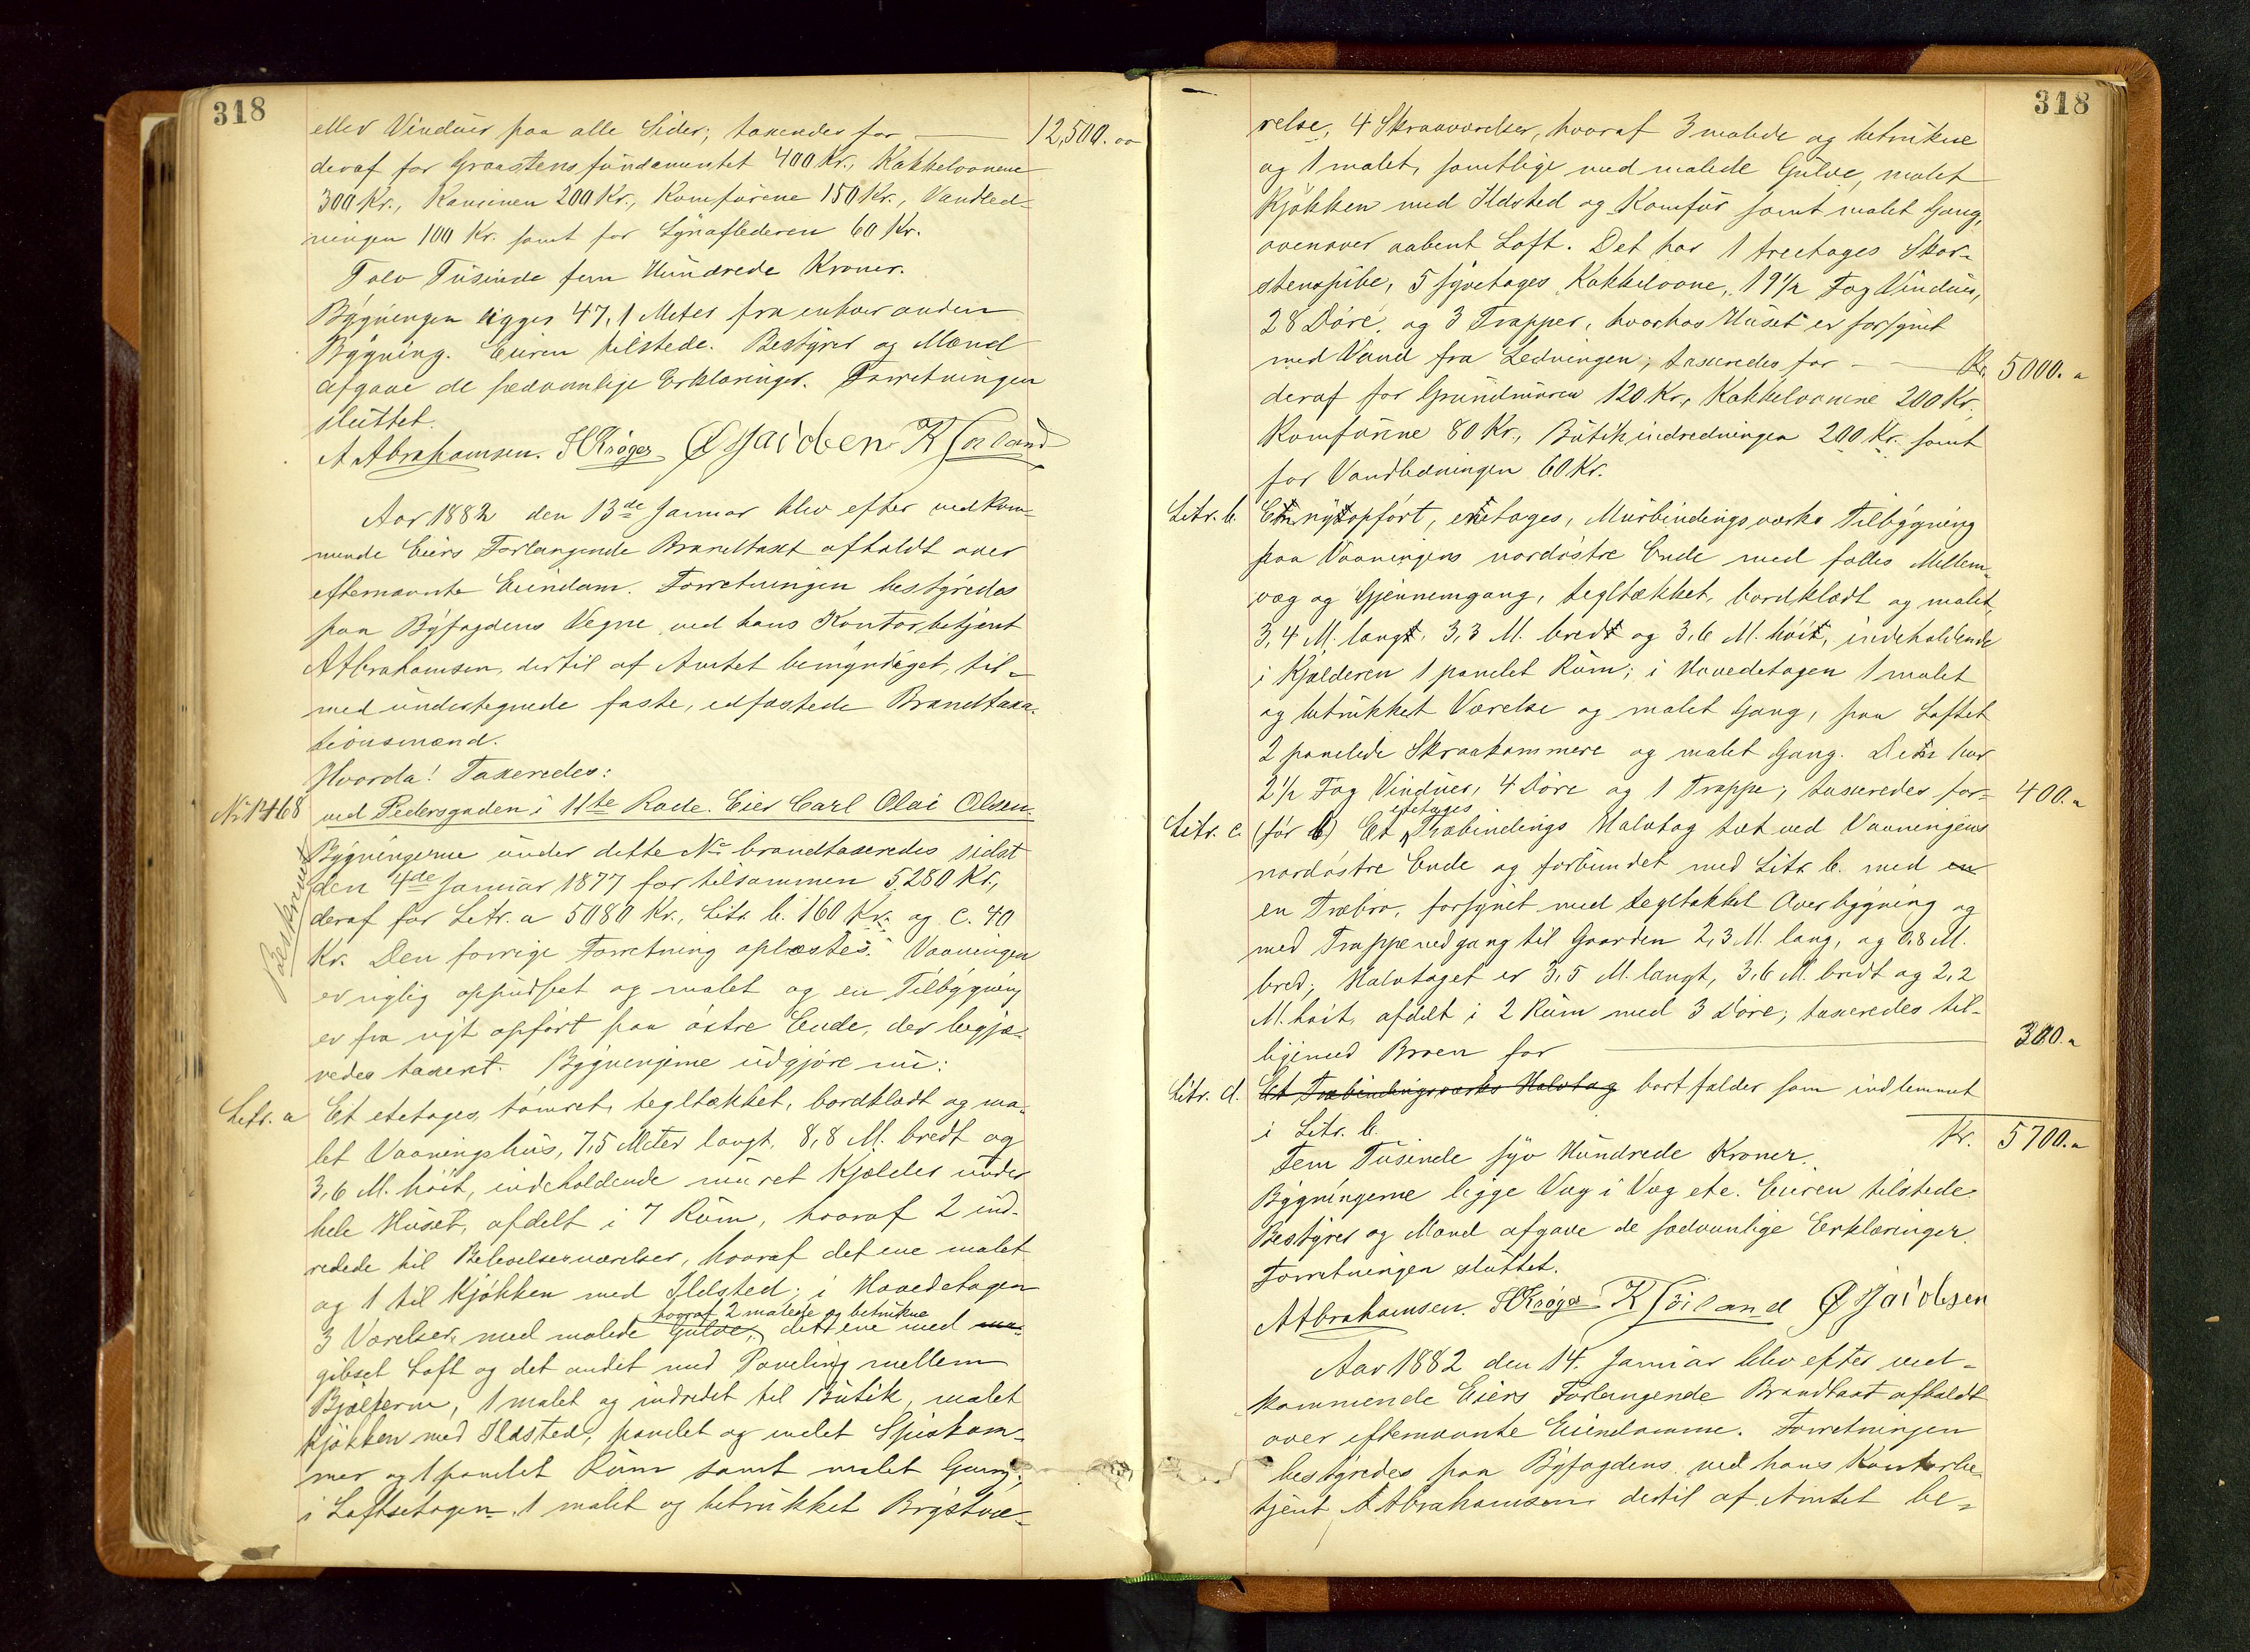 318
eller Vinduer paa alle Sider; taxeredes for — 12,500.00
deraf for Graastensfundamentet 400 Kr., Kakkelovnene
300 Kr., Kaminen 200 Kr., Komfurene 150 Kr., Vandled-
ningen 100 Kr. samt for Lynaflederen 60 Kr.
Tolv Tusinde fem Hundrede Kroner.
Bygningen ligger 47,1 Meter fra enhver anden
Bygning. Eieren tilstede. Bestyrer og Mænd
afgave de sædvanlige Erklæringer. Forretningen
sluttet.
A Abrahamsen. H Krøger
Aar 1882 den 13de Januar blev efter vedkom-
mende Eiers Forlangende Brandtaxt afholdt over
efternævnte Eiendom. Forretningen bestyredes
paa Byfogdens Vegne ved hans Kontorbetjent
A Abrahamsen, dertil af Amtet bemyndiget, til-
med undertegnede faste, edfæstede Brandtaxa-
tionsmænd.
Hvorda! Taxeredes:
ved Pedersgaden i 11te Rode. Eier Carl Olai Olsen.
Bygningerne under dette No brandtaxeredes sidst
Beskrevet
den 4de Januar 1877 for tilsammen 5280 Kr.,
deraf for Litr. a 5080 Kr., Litr b. 160 Kr. og c. 40
Kr. Den forrige Forretning oplæstes. Vaaningen
er nylig oppudset og malet og en Tilbygning
er fra nyt opført paa østre Ende, der begjæ-
redes taxeret. Bygningerne udgjøre nu:
Litr. a Et etetages, tømret, tegltækket, bordklædt og ma-
let Vaaningshus, 7,5 Meter langt, 8,8 M. bredt og
3,6 M. høit, indeholdende muret Kjælder under
hele Huset, afdelt i 7 Rum, hvoraf 2 ind-
redede til Beboelsesværelser, hvoraf det ene malet
og 1 til Kjøkken med Ildsted; i Hovedetagen
hvoraf 2 malede og betrukne
3 Værelser, med malede Gulve, det ene med ma-
gibset Loft og det andet med Paneling mellem
Bjælkerne, 1 malet og indredet til Butik, malet
Kjøkken med Ildsted, panelet og malet Spiskam-
mer og 1 panelet Rum samt malet Gang;
i Loftsetagen 1 malet og betrukket Brystvæ-
318
relse, 4 Skraaværelser, hvoraf 3 malede og betrukne
og 1 malet, samtlige med malede Gulve, malet
Kjøkken med Ildsted og Komfur samt malet Gang,
ovenover aabent Loft. Det har 1 treetages Skor-
stenspibe, 5 syvetages Kakkelovne, 19 1/2 Fag Vinduer,
28 Døre, og 3 Trapper, hvorhos Huset er forsynet
med Vand fra Ledningen; taxeredes for — Kr. 5000.
deraf for Grundmuren 120 Kr., Kakkelovnene 200 Kr.
Komfurene 80 Kr., Butikindredningen 200 Kr. samt
for Vandledningen 60 Kr.
Litr. b. En nyopført, enetages, Murbindingsværks Tilbygning
paa Vaaningens nordøstre Ende med fælles Mellem-
væg og Gjennemgang, tegltækket, bordklædt og malet,
3,4 M. lang, 3,3 M. bred og 3,6 M. høi, indeholdende
i Kjælderen 1 panelet Rum; i Hovedetagen 1 malet
og betrukket Værelse og malet Gang, paa Loftet
2 panelede Skraakammere og malet Gang. Den har
2 1/2 Fag Vinduer, 4 Døre og 1 Trappe; taxeredes for- 400.
etetages
Litr. c. (før b) Et Træbindings Halvtag tæt ved Vaaningens
nordøstre Ende og forbundet med Litr b. med en
en Træbro, forsynet med tegltækket Overbygning og
med Trappenedgang til Gaarden 2,3 M. lang, og 0,8 M.
bred; Halvtaget er 3,5 M. langt, 3,6 M. bredt og 2,2
M. høit, afdelt i 2 Rum med 3 Døre; taxeredes til-
ligemed Broen for — 300.
Litr. d. Et Træbindingsværks Halvtag bortfalder som indlemmet
i Litr. b.
Kr. 5700.
Fem Tusinde syv Hundrede Kroner.
Bygningerne ligge Væg i Væg etc. Eieren tilstede.
Bestyrer og Mænd afgave de sædvanlige Erklæringer.
Forretningen sluttet.
A Abrahamsen. H Krøger
Aar 1882 den 14. Januar blev efter ved-
kommende Eiers Forlangende Brandtaxt afholdt
over efternævnte Eiendomme. Forretningen
bestyredes paa Byfogdens ved hans Kontorbe-
tjent A Abrahamsen dertil af Amtet be-